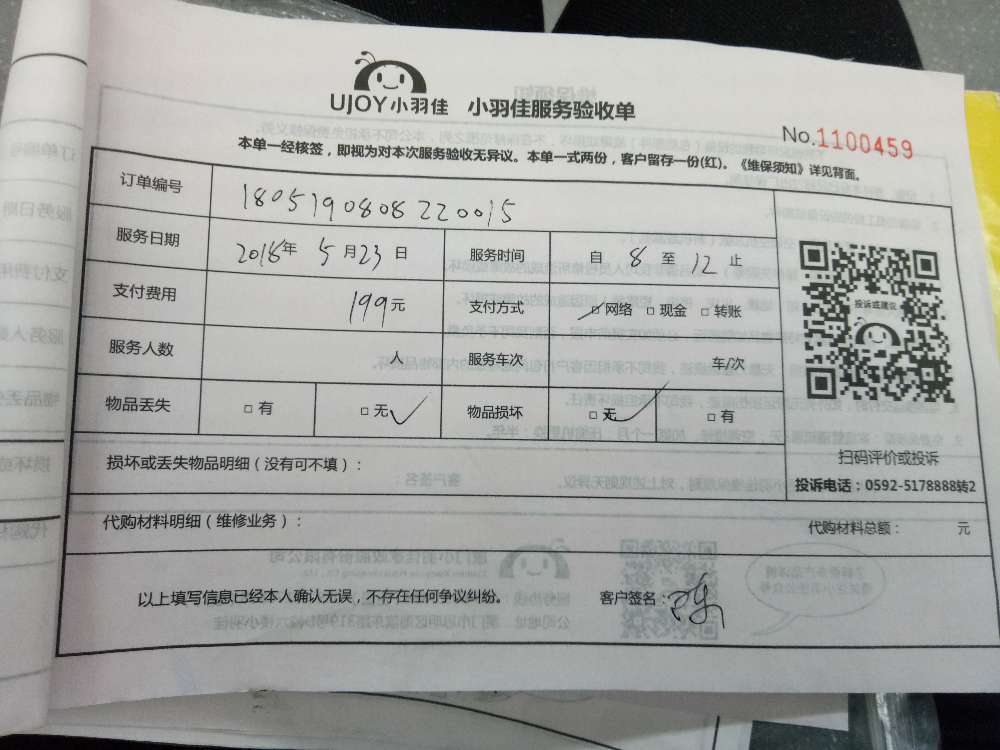 UJOY小羽佳 小羽佳服务验收单
No.1100459
本单一经核签，即视为对本次服务验收无异议。本单一式两份，客户留存一份(红)。《维保须知》详见背面。
订单编号 1805190808220015
服务日期 2018年 5月23日 服务时间 自 8 至 12 止
支付费用 199元 支付方式 ☑网络 □现金 □转账
投诉或建议
服务人数 人 服务车次 车/次
物品丢失 □有 □无✓ 物品损坏 □无✓ □有
扫码评价或投诉
损坏或丢失物品明细（没有可不填）：
投诉电话：0592-5178888转2
代购材料明细（维修业务）： 代购材料总额： 元
以上填写信息已经本人确认无误，不存在任何争议纠纷。 客户签名：